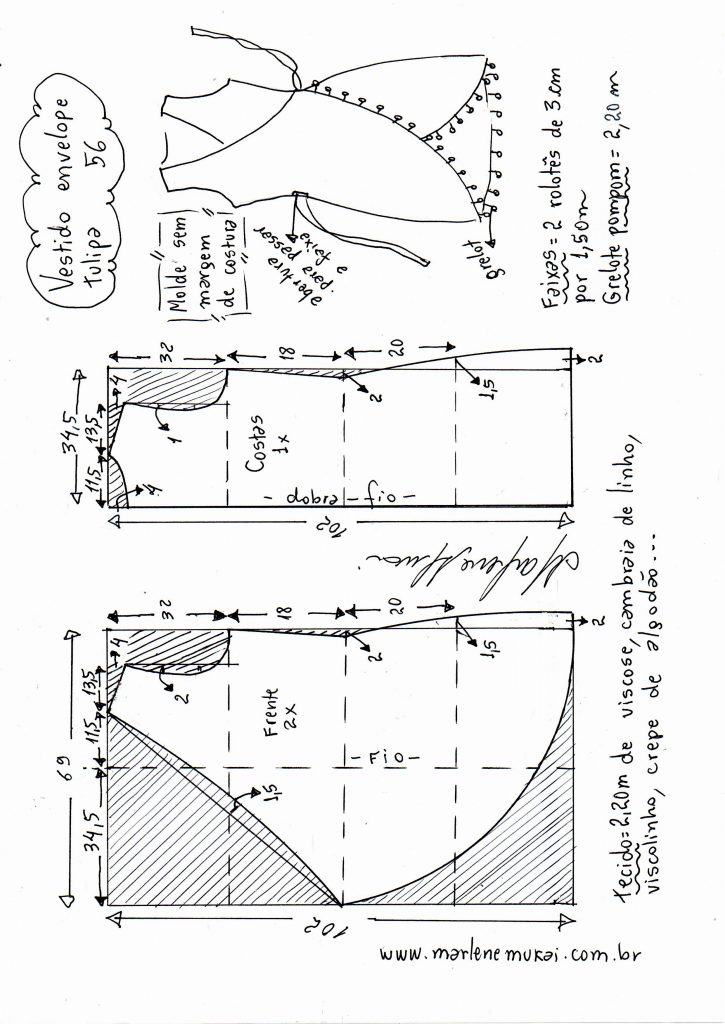 Vestido envelope
tulipa 56
"Molde sem
margem
de costura"
abertura
exist e
grelot
Faixas = 2 rolotês de 3cm
por 1,50m
Grelote pompom = 2,20m
34,5
11,5
13,5
4
4
32
18
20
1
2
1,5
2
Costas
1x
- dobra - fio -
102
Marlene Mukai
69
34,5
11,5
13,5
4
32
18
20
2
2
1,5
2
1,5
Frente
2x
- Fio -
102
Tecido = 2,20m de viscose, cambraia de linho,
viscolinho, crepe de algodão...
www.marlenemukai.com.br